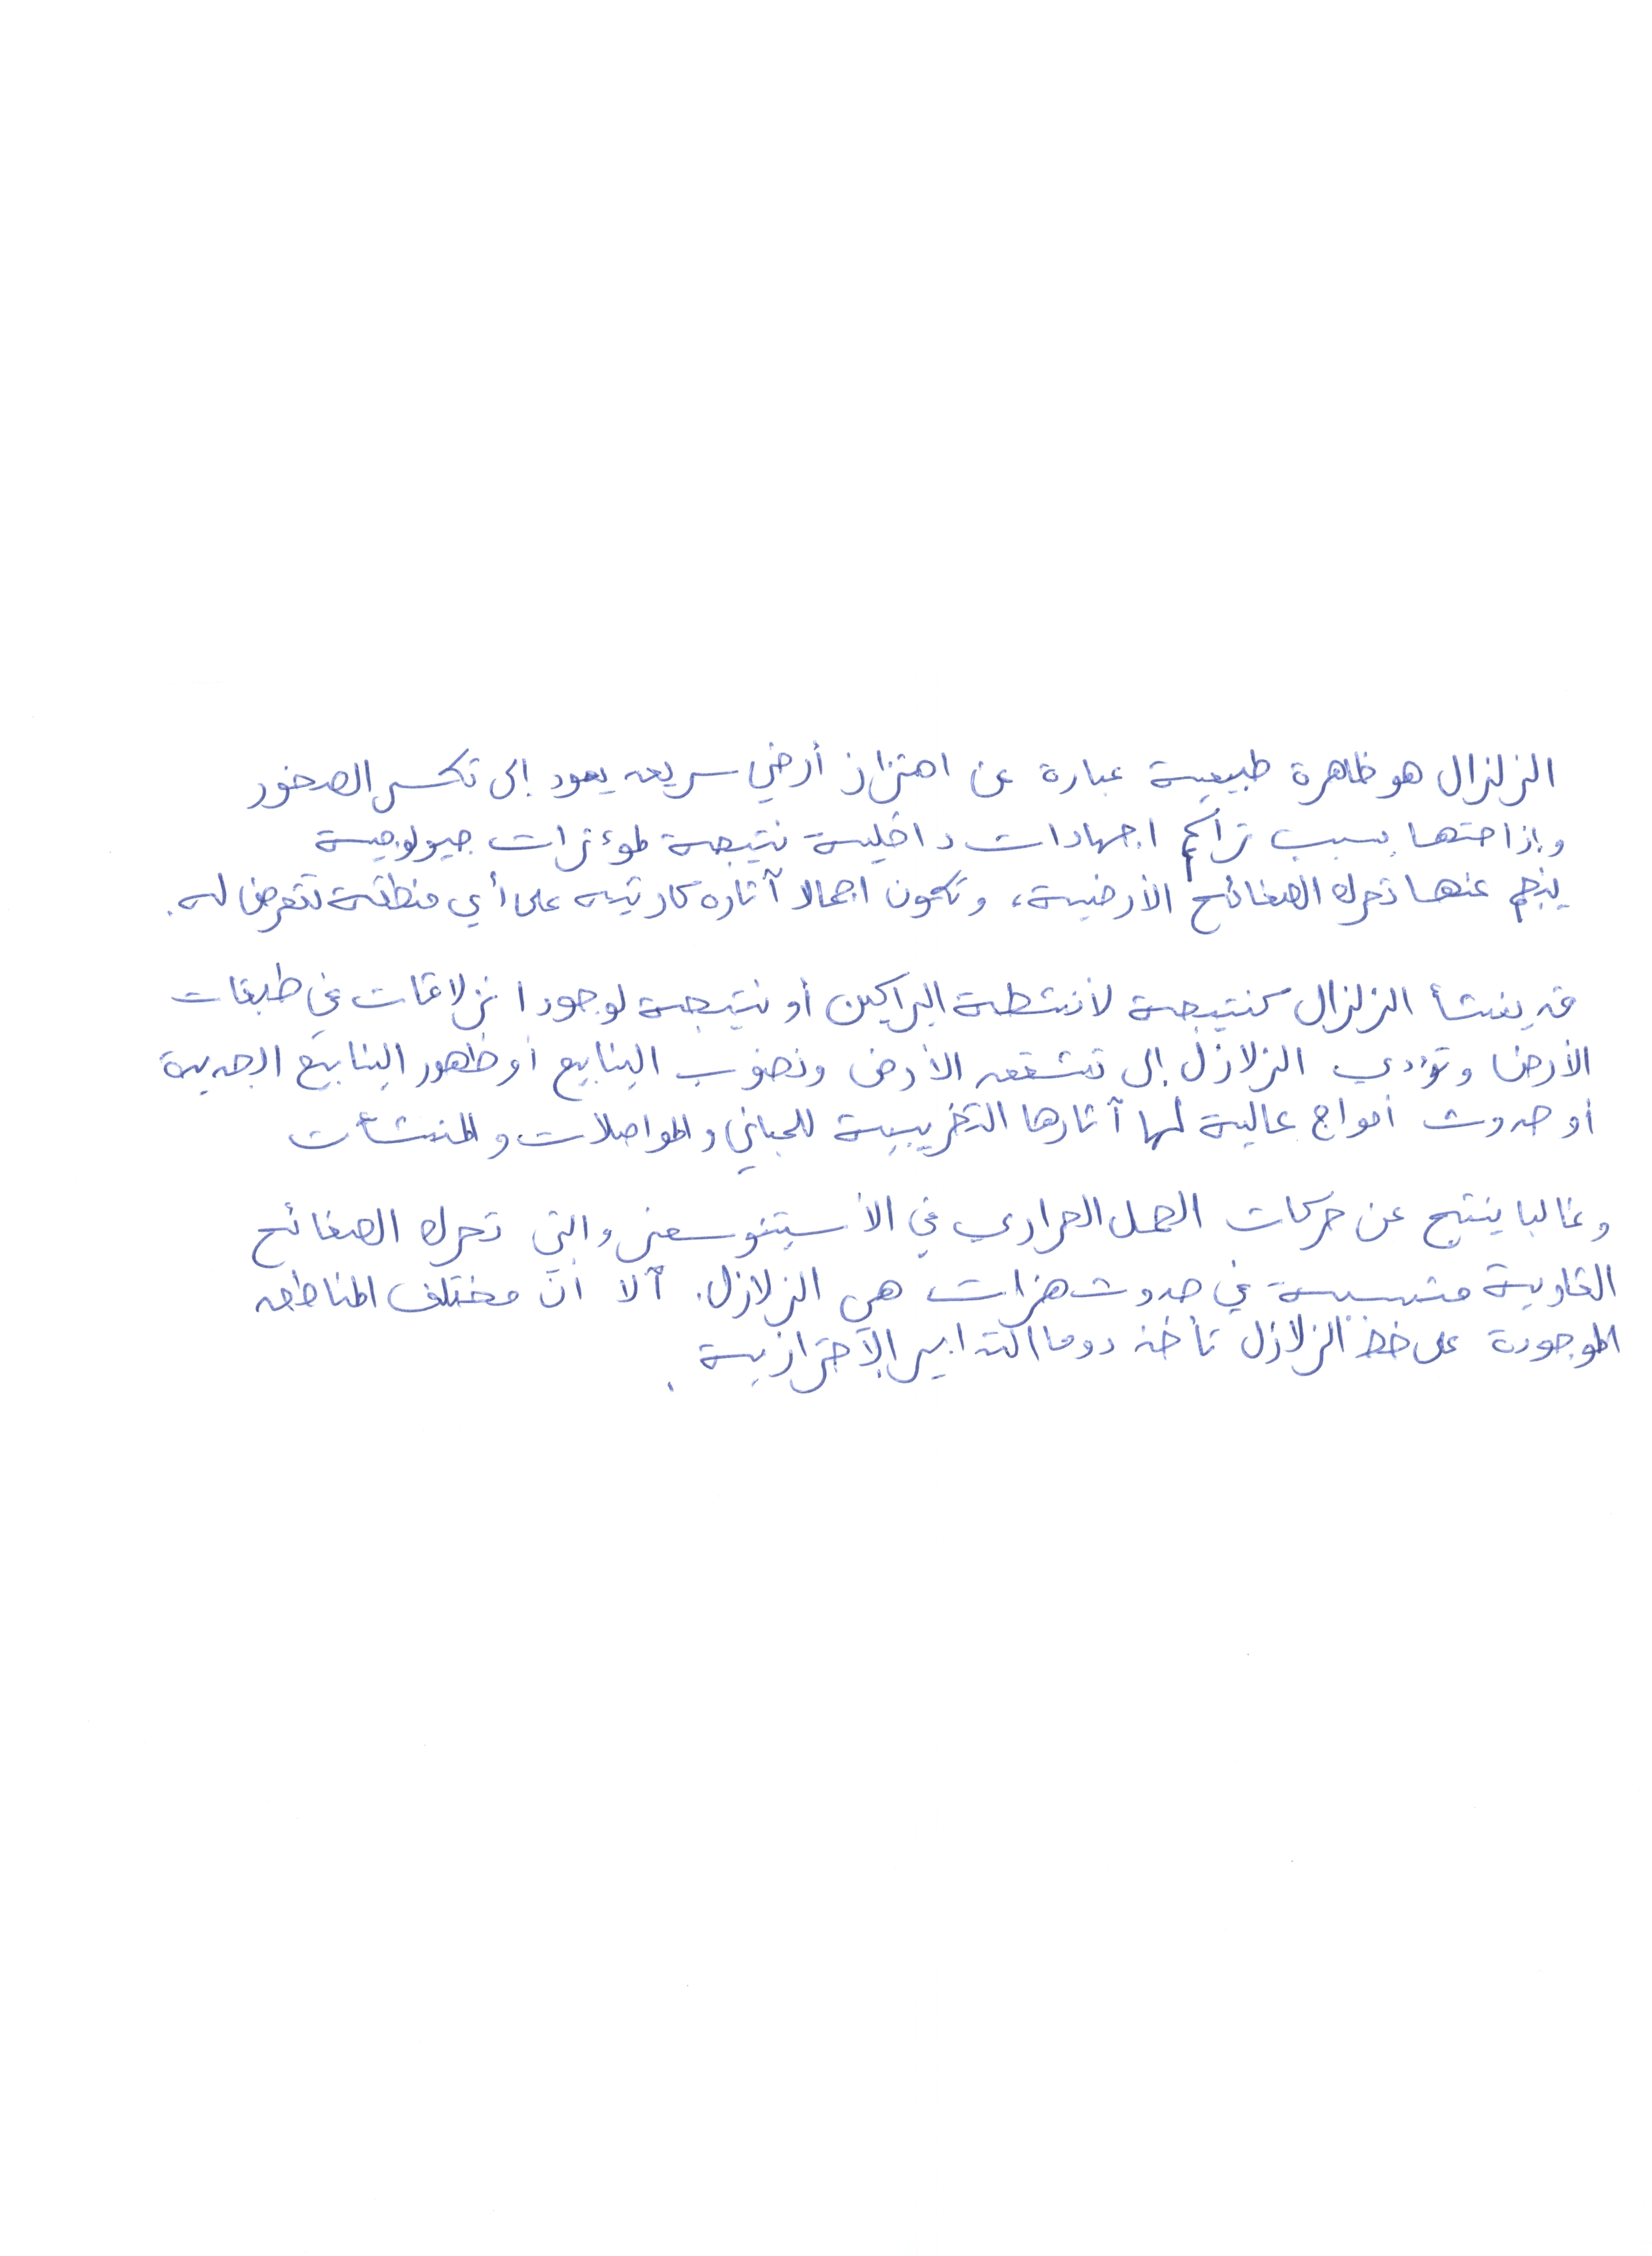 الزلزال هو ظاهرة طبيعية عبارة عن اهتزاز أرضي سريع يعود إلى تكسر الصخور
وإزاحتها بسبب تراكم اجهادات داخلية نتيجة لمؤثرات جيولوجية
ينجم عنها تحرك الصفائح الأرضية، وتكون اجمالا آثاره كارثيه على أي منطقة تتعرض له.
قد ينشأ الزلزال كنتيجة لأنشطة البراكين أو نتيجة لوجود انزلاقات في طبقات
الأرض وتؤدي الزلازل إلى تشقق الأرض ونضوب الينابيع أو ظهور الينابيع الجديدة
أو حدوث أمواج عالية لها آثارها التخريبية للمباني والمواصلات والمنشأت
وغالبا ينتج عن حركات الحمل الحراري في الأسيتنوسفير والتي تحرك الصفائح
القارية متسببة في حدوث هزات هي الزلازل. آلا أن مختلف المناطق
الموجودة على خط الزلازل تأخذ دوما التدابير الإحترازية.